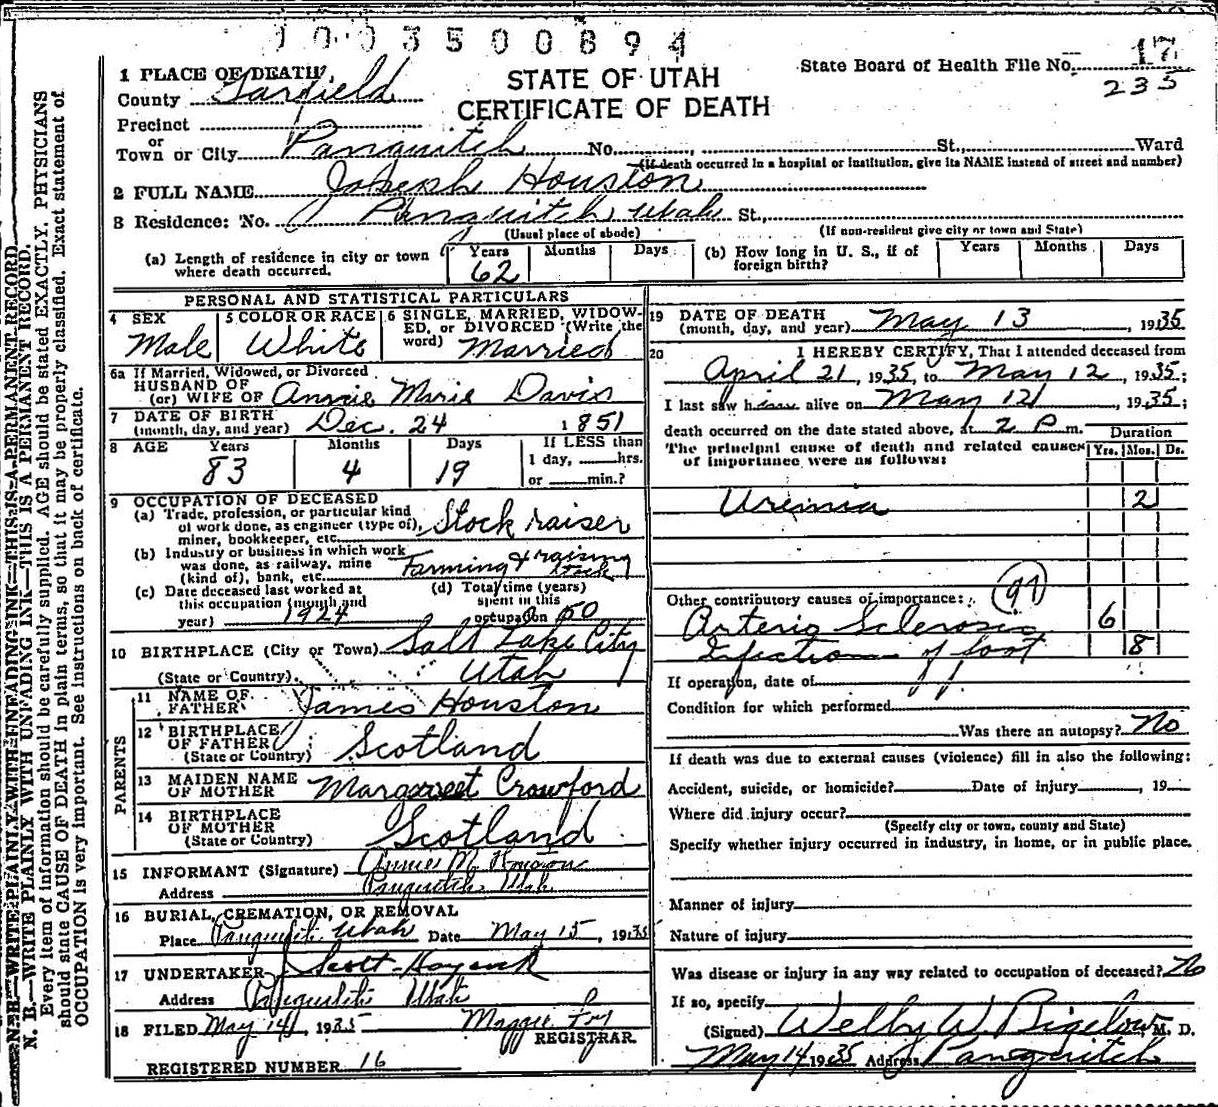 1003500894
1 PLACE OF DEATH
County Garfield
Precinct
or
Town or City Panguitch No. St., Ward
(If death occurred in a hospital or institution, give its NAME instead of street and number)
STATE OF UTAH
CERTIFICATE OF DEATH
State Board of Health File No. 17
235
2 FULL NAME Joseph Houston
3 Residence: No. Panguitch Utah St.,
(Usual place of abode) (If non-resident give city or town and State)
(a) Length of residence in city or town where death occurred. Years 62 Months Days
(b) How long in U. S., if of foreign birth? Years Months Days
PERSONAL AND STATISTICAL PARTICULARS
4 SEX Male
5 COLOR OR RACE White
6 SINGLE, MARRIED, WIDOWED, or DIVORCED (Write the word) Married
6a If Married, Widowed, or Divorced
HUSBAND OF
(or) WIFE OF Annie Marie Davis
7 DATE OF BIRTH
(month, day, and year) Dec. 24 1851
8 AGE Years 83 Months 4 Days 19 If LESS than 1 day, hrs. or min.?
9 OCCUPATION OF DECEASED
(a) Trade, profession, or particular kind of work done, as engineer (type of), miner, bookkeeper, etc. Stock raiser
(b) Industry or business in which work was done, as railway, mine (kind of), bank, etc. Farming & raising stock
(c) Date deceased last worked at this occupation (month and year) 1924
(d) Total time (years) spent in this occupation 50
10 BIRTHPLACE (City or Town) Salt Lake City
(State or Country) Utah
PARENTS
11 NAME OF FATHER James Houston
12 BIRTHPLACE OF FATHER
(State or Country) Scotland
13 MAIDEN NAME OF MOTHER Margaret Crawford
14 BIRTHPLACE OF MOTHER
(State or Country) Scotland
15 INFORMANT (Signature) Annie M. Houston
Address Panguitch Utah
16 BURIAL, CREMATION, OR REMOVAL
Place Panguitch Utah Date May 15, 1935
17 UNDERTAKER Scott Haycock
Address Panguitch Utah
18 FILED May 14, 1935 Maggie Foy
REGISTRAR
REGISTERED NUMBER 16
19 DATE OF DEATH
(month, day, and year) May 13, 1935
20 I HEREBY CERTIFY, That I attended deceased from
April 21, 1935, to May 12, 1935;
I last saw him alive on May 12, 1935;
death occurred on the date stated above, at 2 P m.
The principal cause of death and related causes of importance were as follows:
Duration
Yrs. Mos. Ds.
Uremia 2
Other contributory causes of importance: 97
Arterio Sclerosis 6
Infection of foot 8
If operation, date of
Condition for which performed
Was there an autopsy? No
If death was due to external causes (violence) fill in also the following:
Accident, suicide, or homicide? Date of injury , 19
Where did injury occur?
(Specify city or town, county and State)
Specify whether injury occurred in industry, in home, or in public place.
Manner of injury
Nature of injury
Was disease or injury in any way related to occupation of deceased? No
If so, specify
(Signed) Welby W. Bigelow, M. D.
May 14 1935 Address Panguitch
N. B.—WRITE PLAINLY WITH UNFADING INK—THIS IS A PERMANENT RECORD.
N. B.—WRITE PLAINLY WITH UNFADING INK—THIS IS A PERMANENT RECORD.
Every item of information should be carefully supplied. AGE should be stated EXACTLY. PHYSICIANS
should state CAUSE OF DEATH in plain terms, so that it may be properly classified. Exact statement of
OCCUPATION is very important. See instructions on back of certificate.